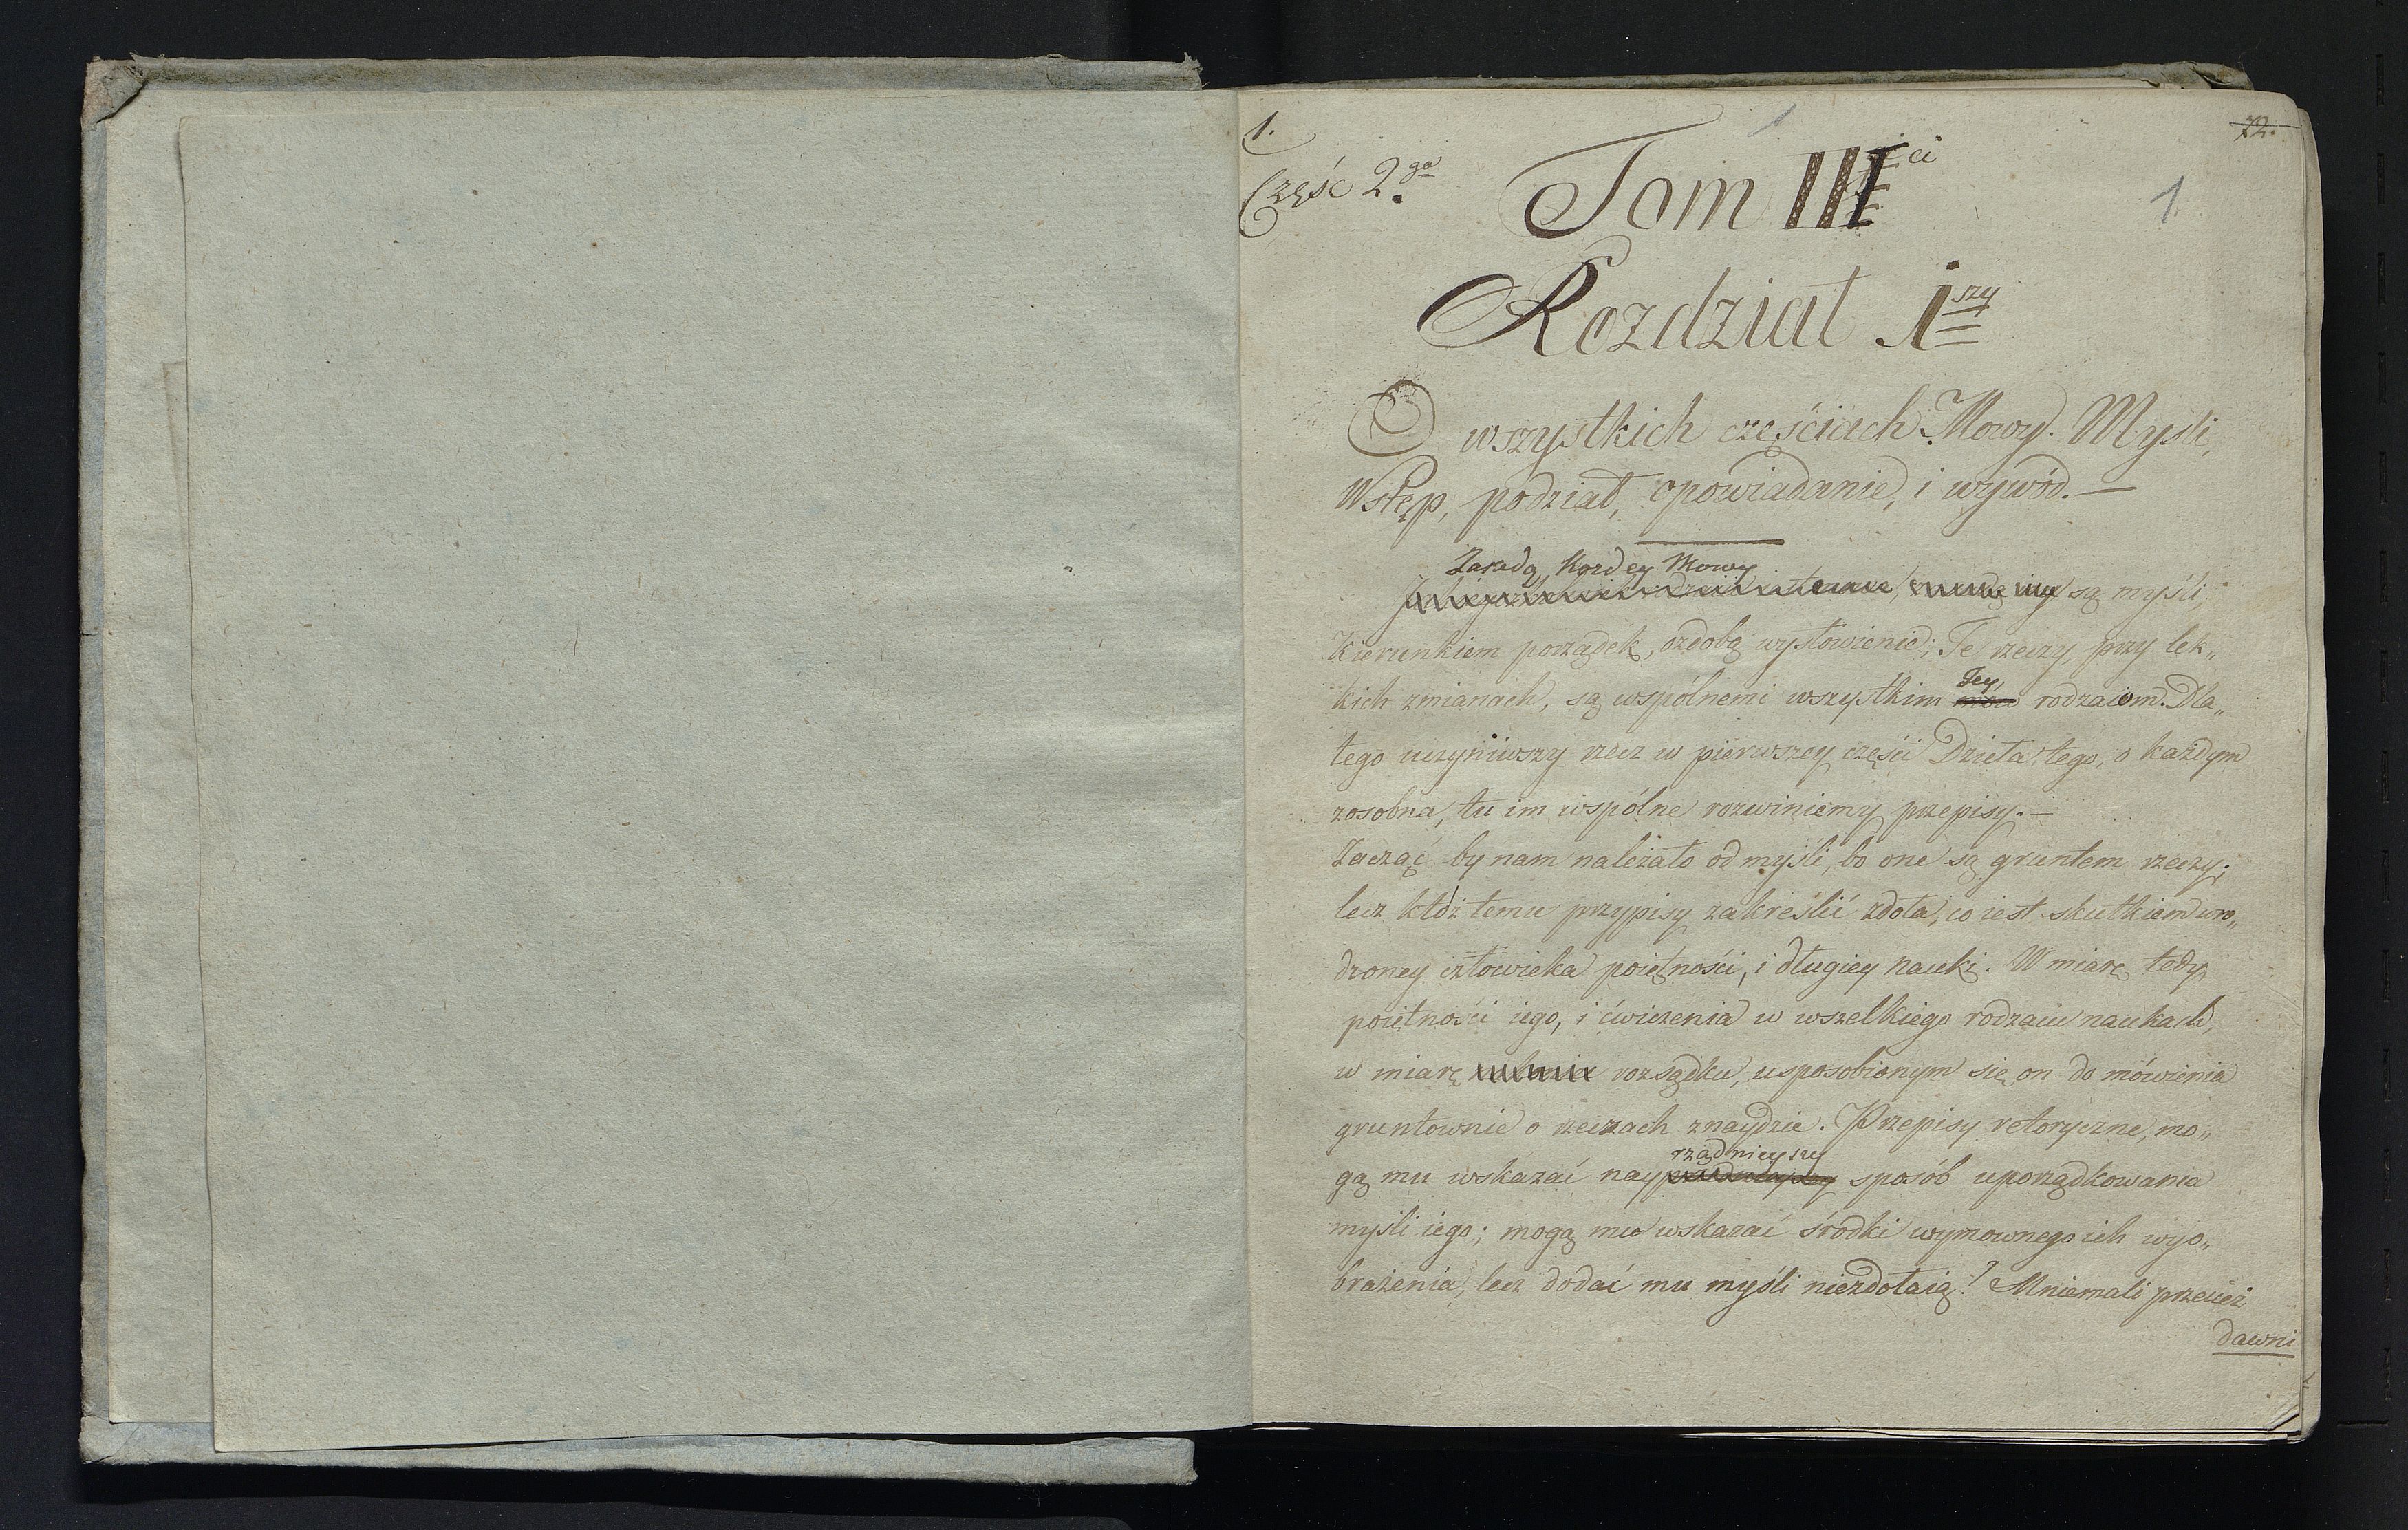 1.
1
72.
Część 2ga.
Tom IIIci
1
Rozdział 1szy
O wszystkich częściach Mowy. Myśli,
Wstęp, podział, opowiadanie, i wywód.—
Zasadą każdey Mowy
są myśli,
kierunkiem porządek, ozdobą wysłowienie; Te rzeczy, przy lek„
kich zmianach, są wspólnemi wszystkim Jey rodzaiom. Dla„
tego uczyniwszy rzecz w pierwszey części Dzieła tego, o każdym
zosobna, tu im wspólne rozwiniemy przepisy.—
Zacząć by nam należało od myśli, bo one są gruntem rzeczy;
lecz któż temu przypisy zakreślić zdoła, co iest skutkiem wro„
dzoney człowieka poiętności, i długiey nauki. W miarę tedy
poiętności iego, i ćwiczenia w wszelkiego rodzaiu naukach,
w miarę rozsądku, usposobionym się on do mówienia
gruntownie o rzeczach znaydzie. Przepisy retoryczne, mo„
rządnieyszy
gą mu wskazać nayp sposób uporządkowania
myśli iego; mogą mu wskazać środki wymownego ich wyo„
brażenia, lecz dodać mu myśli niezdołaią! Mniemali przecież
dawni